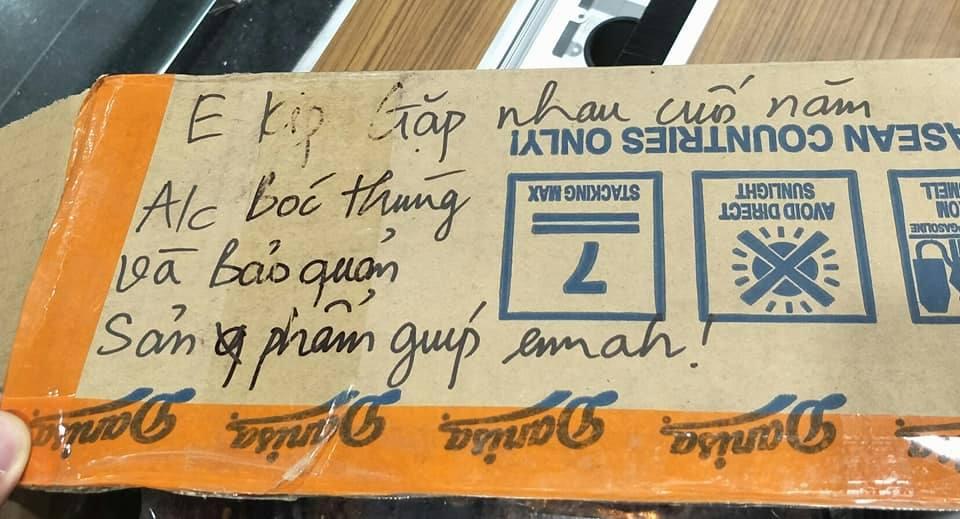 E kíp Gặp nhau cuối năm
A/c bốc thùng
và bảo quản
sản phẩm giúp em ah!
ASEAN COUNTRIES ONLY!
STACKING MAX
7
AVOID DIRECT
SUNLIGHT
GASOLINE
Danisa
Danisa
Danisa
Danisa